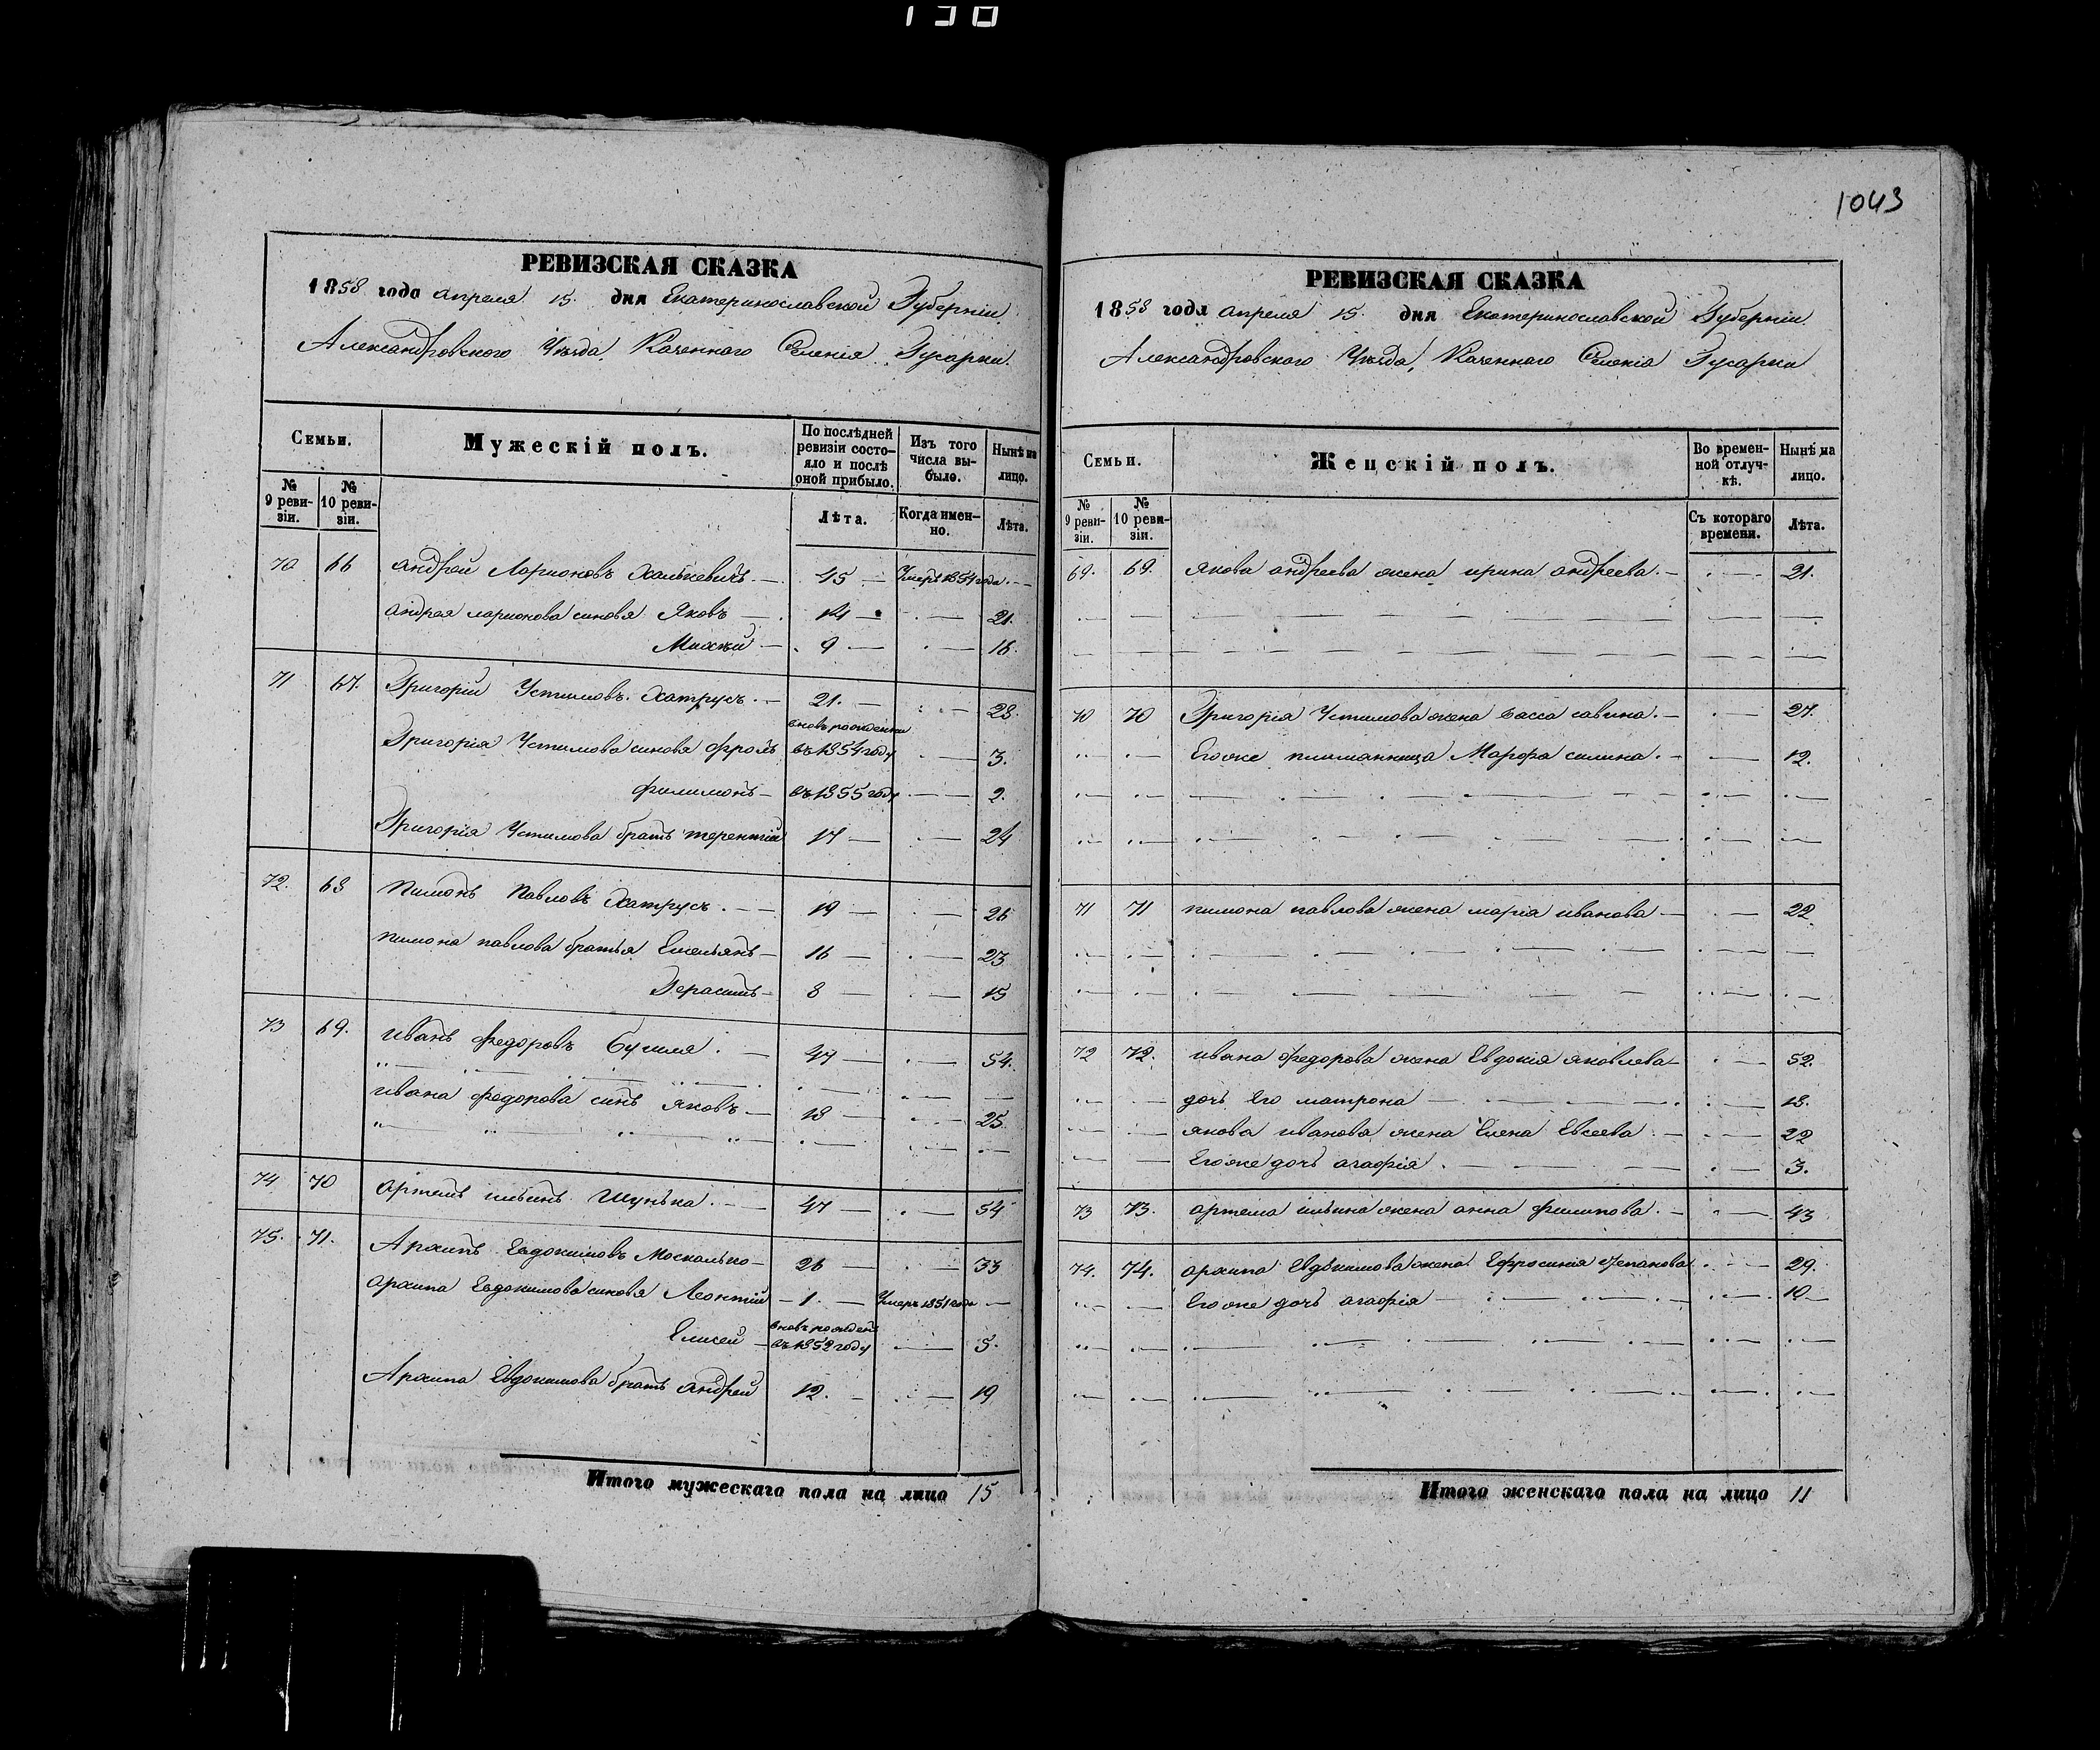 138
1043
РЕВИЗСКАЯ СКАЗКА
1858 года апреля 15. дня Екатеринославской Губерніи
Александровского Уѣзда, Казенного Селенія Гусарки
Семьи.
Мужескій полъ.
По послѣдней ревизіи состояло и послѣ оной прибыло.
Изъ того числа выбыло.
Нынѣ на лицо.
№ 9 ревизіи.
№ 10 ревизіи.
Лѣта.
Когда именно.
Лѣта.
70 66 Андрей Ларионовъ 45 Умеръ 1854 года
Андрея Ларионова синовя Яковъ 14 21.
Михѣй 9 16.
71 67. Григорій Устимовъ Хатрусъ 21. 28.
Григорія Устимова синовя Фролъ вновь рожденни въ 1854 году 3.
Филимонъ въ 1855 году 2.
Григорія Устимова братъ Терентій 17 24
72. 68 Пимонъ Павловъ Хатрусъ 19 26
Пимона Павлова братья Емельянъ 16 23
Герасимъ 8 15
73 69. Иванъ Федоровъ 47 54.
Ивана Федорова синъ Яковъ 18 25
74 70 Артемъ Ильинъ Шунька 47 54
75. 71. Архипъ Евдокимовъ Москалько 26 33
Архипа Евдокимова синовя Леонтій 1. Умеръ 1851 года
Елисей вновь рожден въ 1852 году 5.
Архипа Евдокимова братъ Андрей 12. 19
Итого мужескаго пола на лицо 15
РЕВИЗСКАЯ СКАЗКА
1858 года апреля 15. дня Екатеринославской Губерніи
Александровского Уѣзда, Казенного Селенія Гусарки
Семьи.
Женскій полъ.
Во временной отлучкѣ.
Нынѣ на лицо.
№ 9 ревизіи.
№ 10 ревизіи.
Съ котораго времени.
Лѣта.
69. 69. Якова Андреева жена Ирина Андреева 21.
70 70 Григорія Устимова жена Васса Савина 27.
Его же племянница Марфа Силина 12.
71 71 Пимона Павлова жена Марія Иванова 22
72 72. Ивана Федорова жена Евдокія Яковлева 52.
дочь Его Матрона 18.
Якова Иванова жена Елена Евсеева 22
Его же дочь Агафія 3.
73 73. Артема Ильина жена Анна Филипова 43
74. 74. Архипа Евдокимова жена Ефросинія Степанова 29.
Его же дочь Агафія 10
Итого женскаго пола на лицо 11